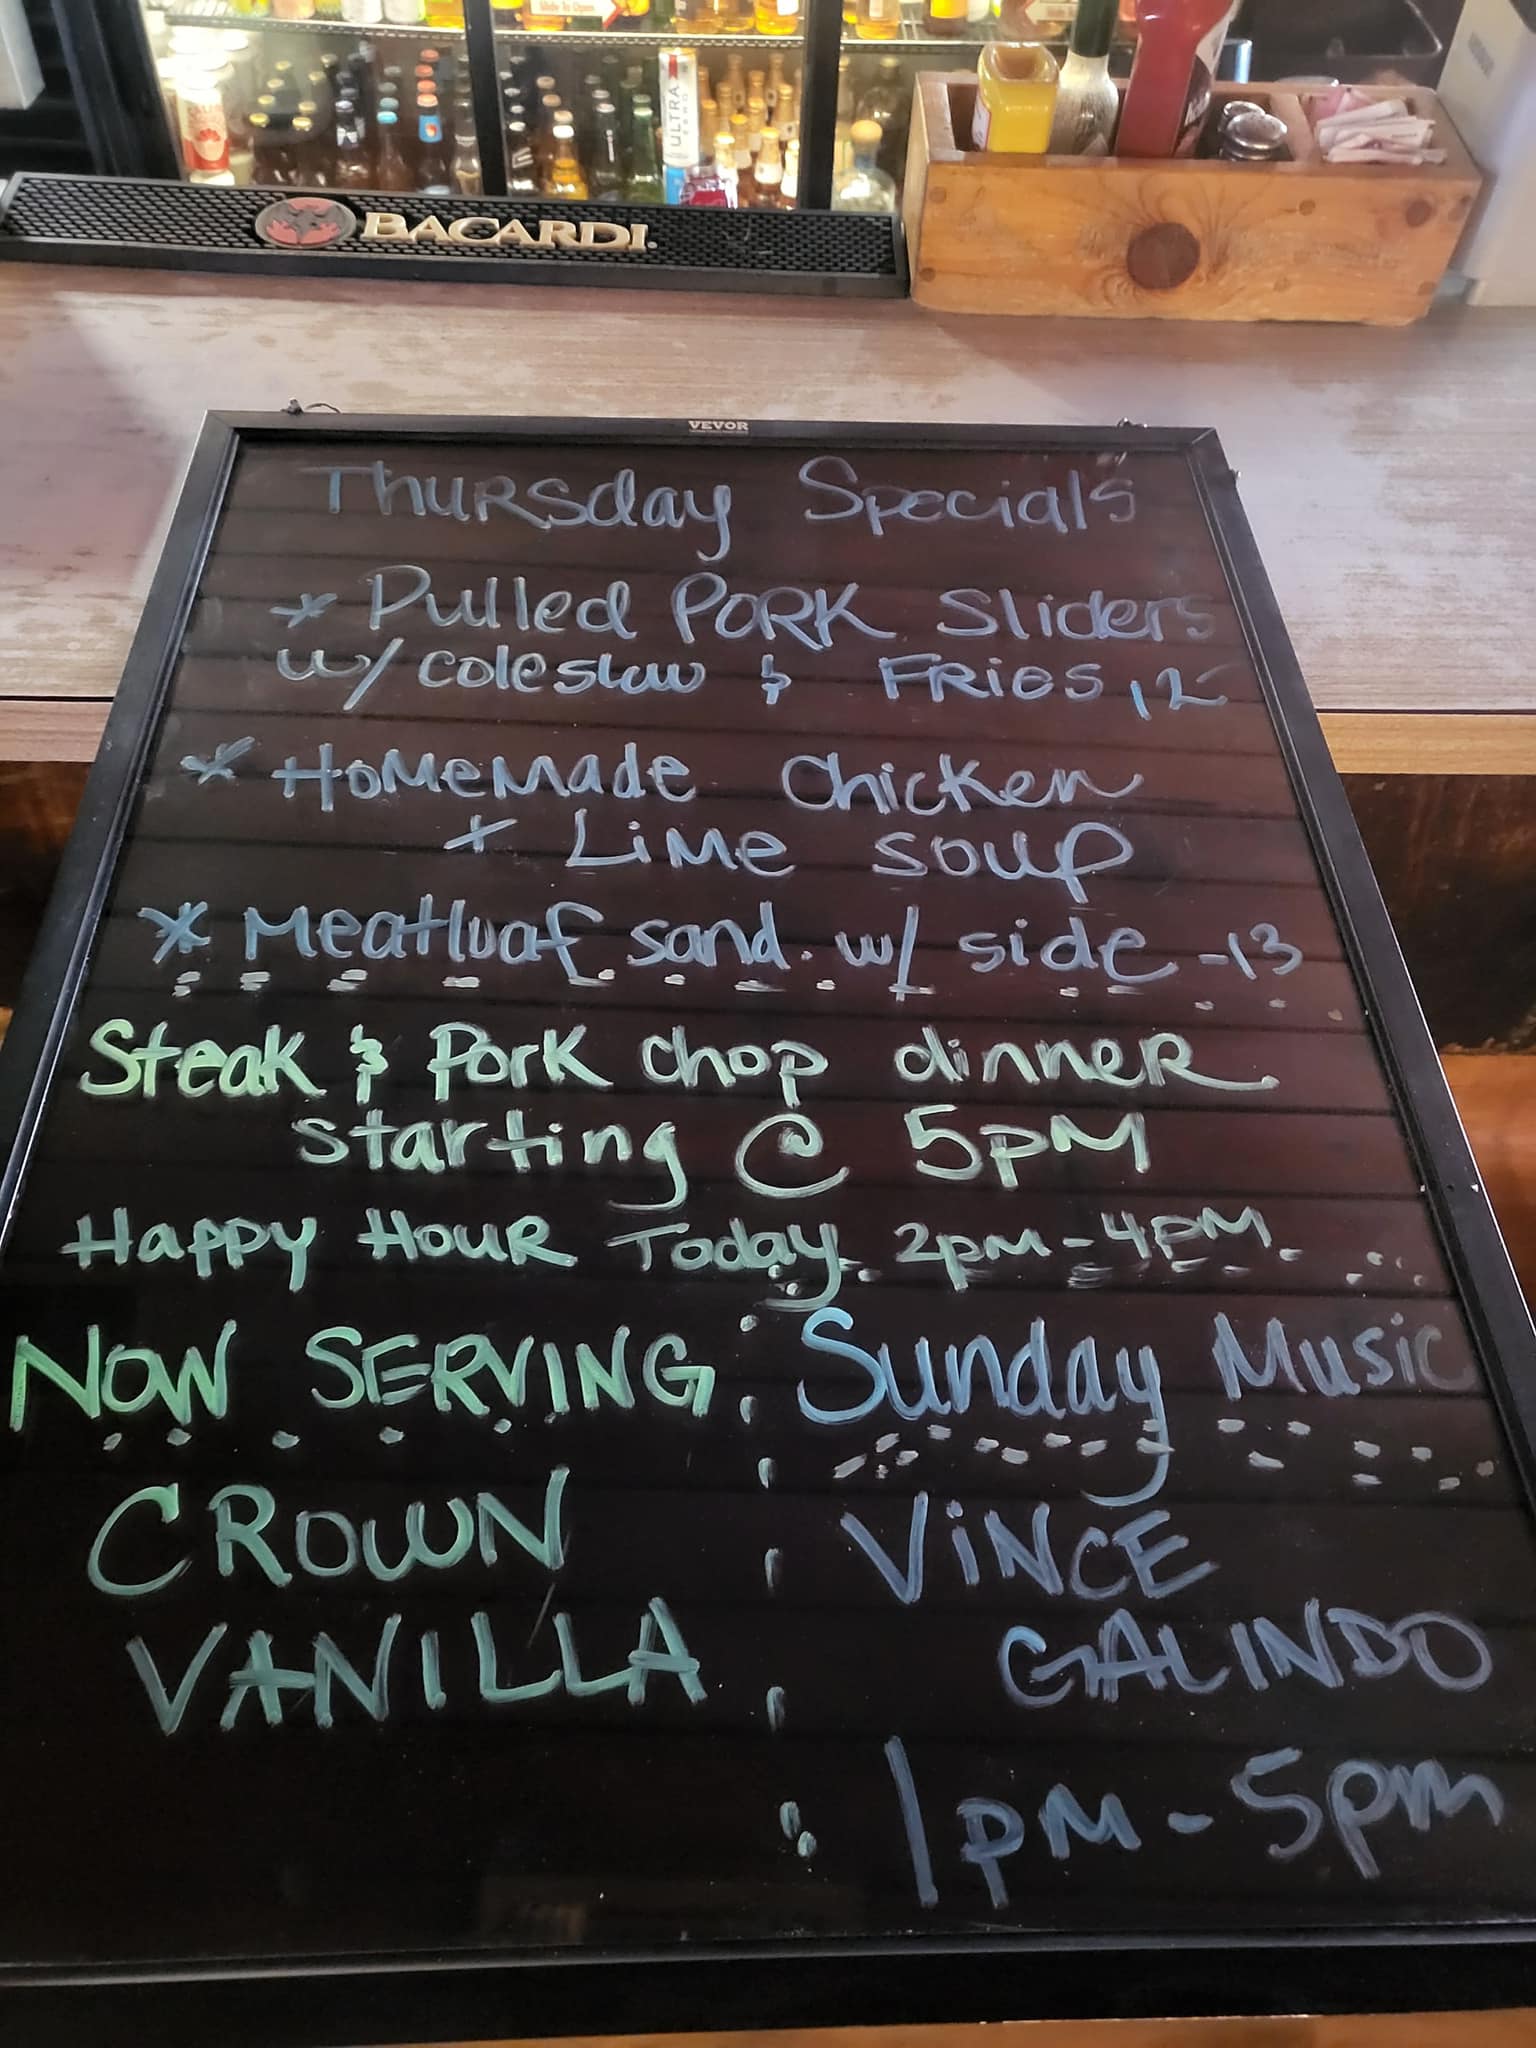 Slide To Open
ULTRA
BACARDI.
VEVOR
Thursday Specials
* Pulled Pork Sliders
w/ coleslaw & Fries 12
* Homemade Chicken
+ Lime soup
* Meatloaf sand. w/ side - 13
Steak & Pork chop dinner
starting @ 5pm
Happy Hour Today 2pm-4pm
NOW SERVING
CROWN
VANILLA
Sunday Music
VINCE
GALINDO
1pm-5pm